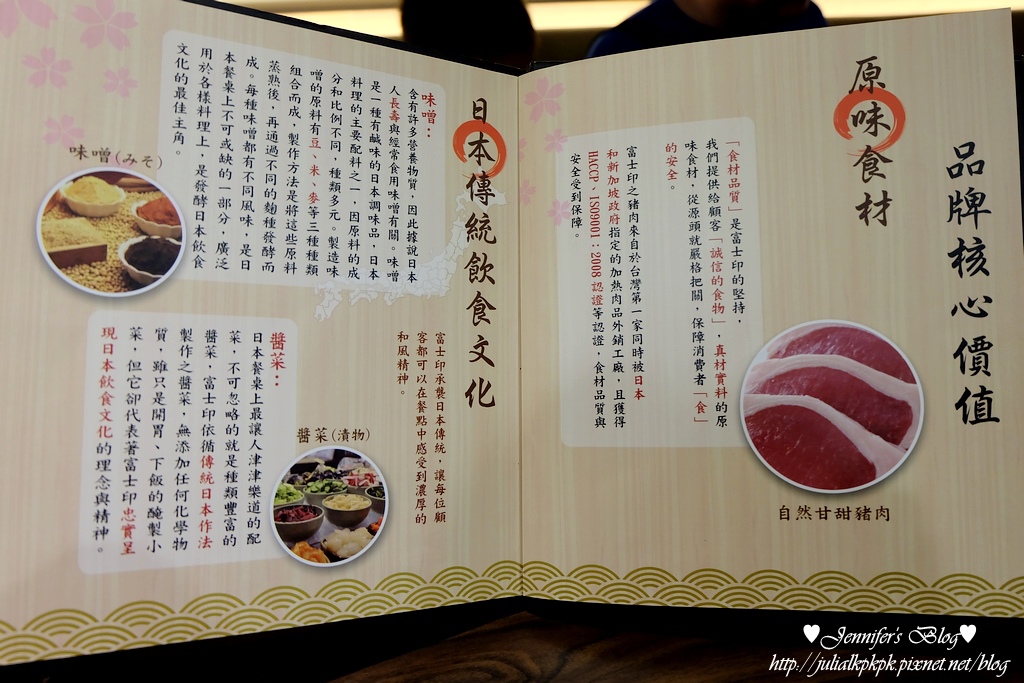 品牌核心價值
原味食材
「食材品質」是富士印的堅持，
我們提供給顧客「誠信的食物」，真材實料的原
味食材，從源頭就嚴格把關，保障消費者「食」
的安全。
富士印之豬肉來自於台灣第一家同時被日本
和新加坡政府指定的加熱肉品外銷工廠，且獲得
HACCP、ISO9001：2008 認證等認證，食材品質與
安全受到保障。
自然甘甜豬肉
日本傳統飲食文化
富士印承襲日本傳統，讓每位顧
客都可以在餐點中感受到濃厚的
和風精神。
味噌：
含有許多營養物質，因此據說日本
人長壽與經常食用味噌有關。味噌
是一種有鹹味的日本調味品，日本
料理的主要配料之一，因原料的成
分和比例不同，種類多元。製造味
噌的原料有豆、米、麥等三種種類
組合而成，製作方法是將這些原料
蒸熟後，再通過不同的麴種發酵而
成。每種味噌都有不同風味，是日
本餐桌上不可或缺的一部分，廣泛
用於各樣料理上，是發酵日本飲食
文化的最佳主角。
味噌(みそ)
醬菜：
日本餐桌上最讓人津津樂道的配
菜，不可忽略的就是種類豐富的
醬菜，富士印依循傳統日本作法
製作之醬菜，無添加任何化學物
質，雖只是開胃、下飯的醃製小
菜，但它卻代表著富士印忠實呈
現日本飲食文化的理念與精神。
醬菜(漬物)
♥Jennifer's Blog♥
http://julialkpkpk.pixnet.net/blog